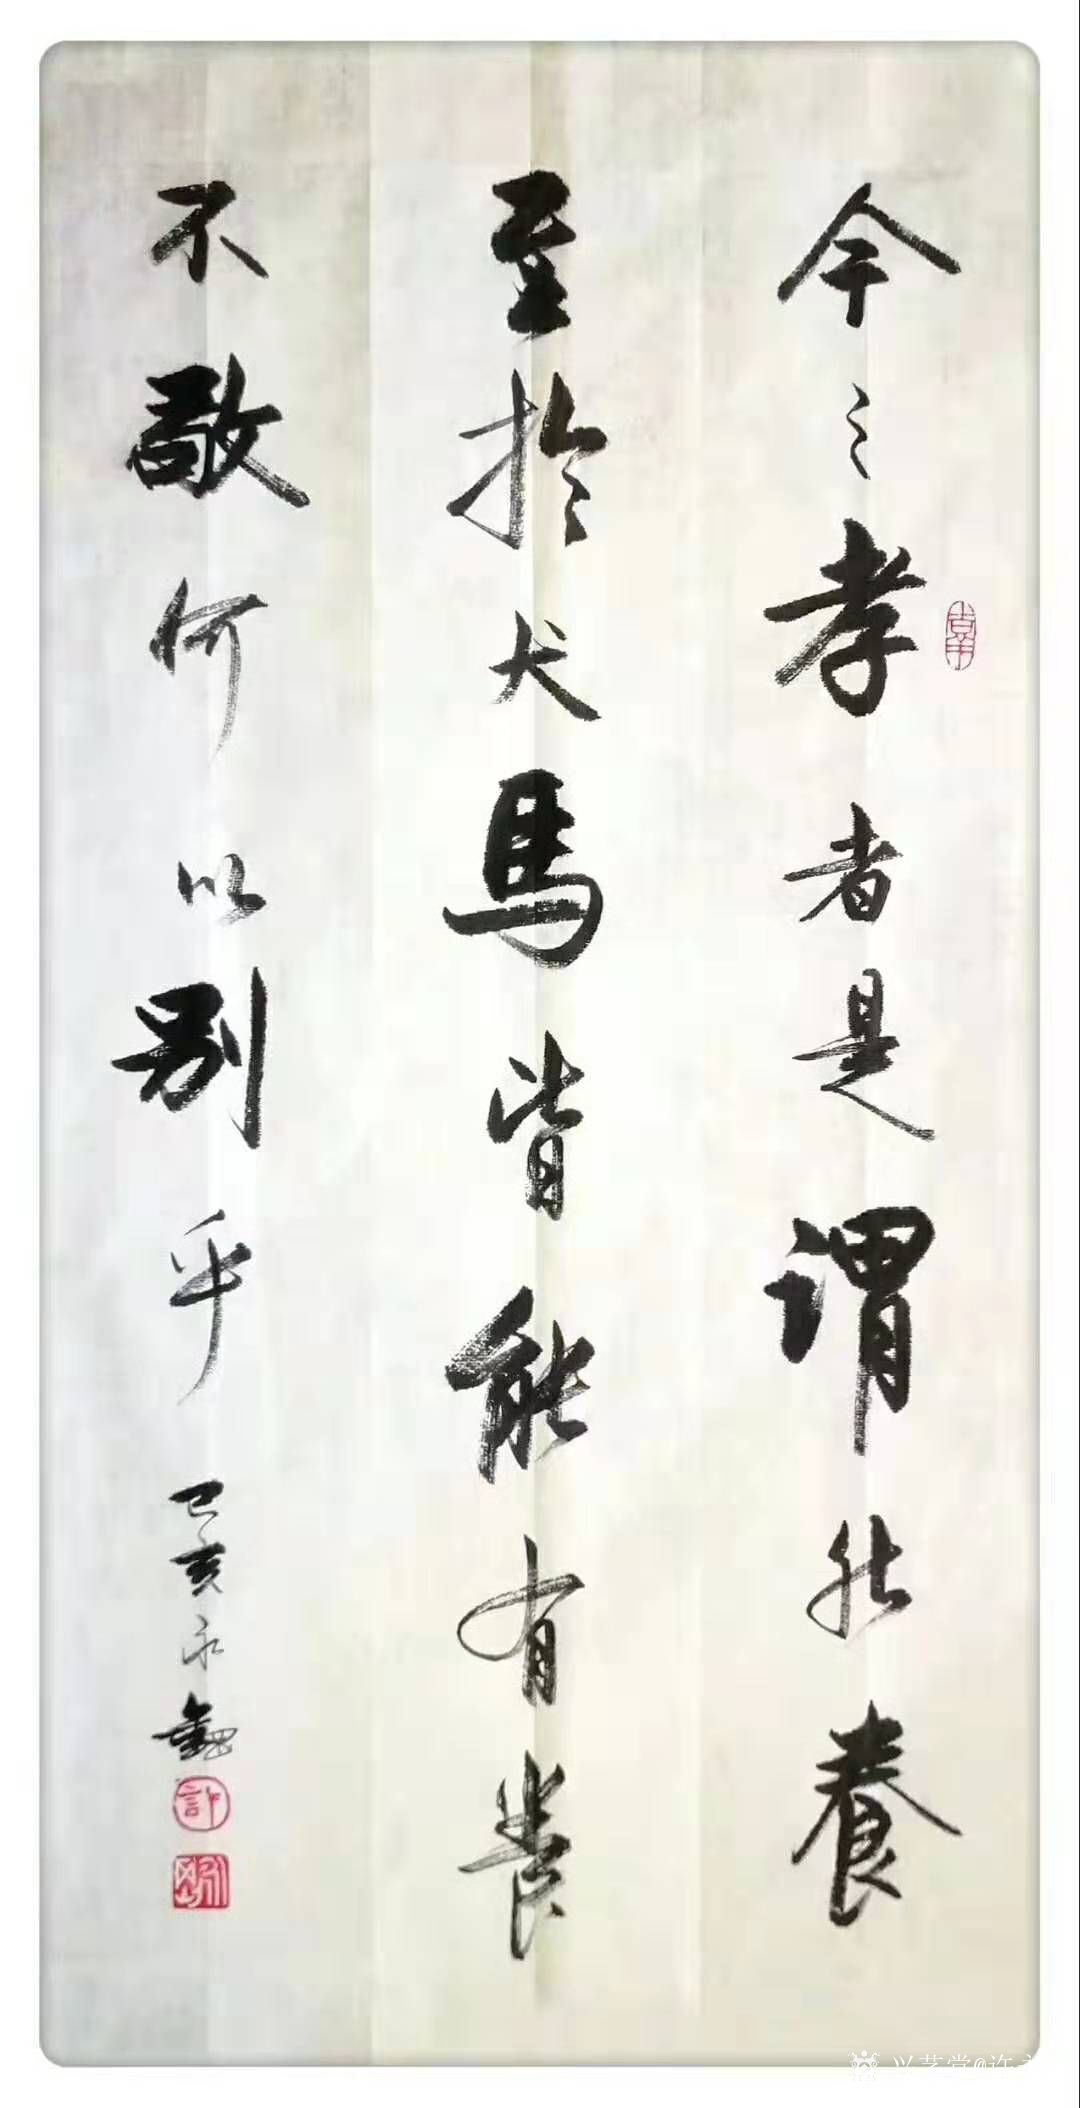 今之孝者是谓能養
至於犬馬皆能有養
不敬何以别乎
己亥永
許
兴艺堂@许